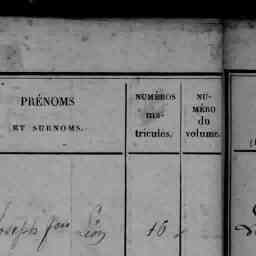 PRÉNOMS
ET SURNOMS.
NUMÉROS
ma-
tricules.
NU-
MÉRO
du
volume.
Joseph Léon
16